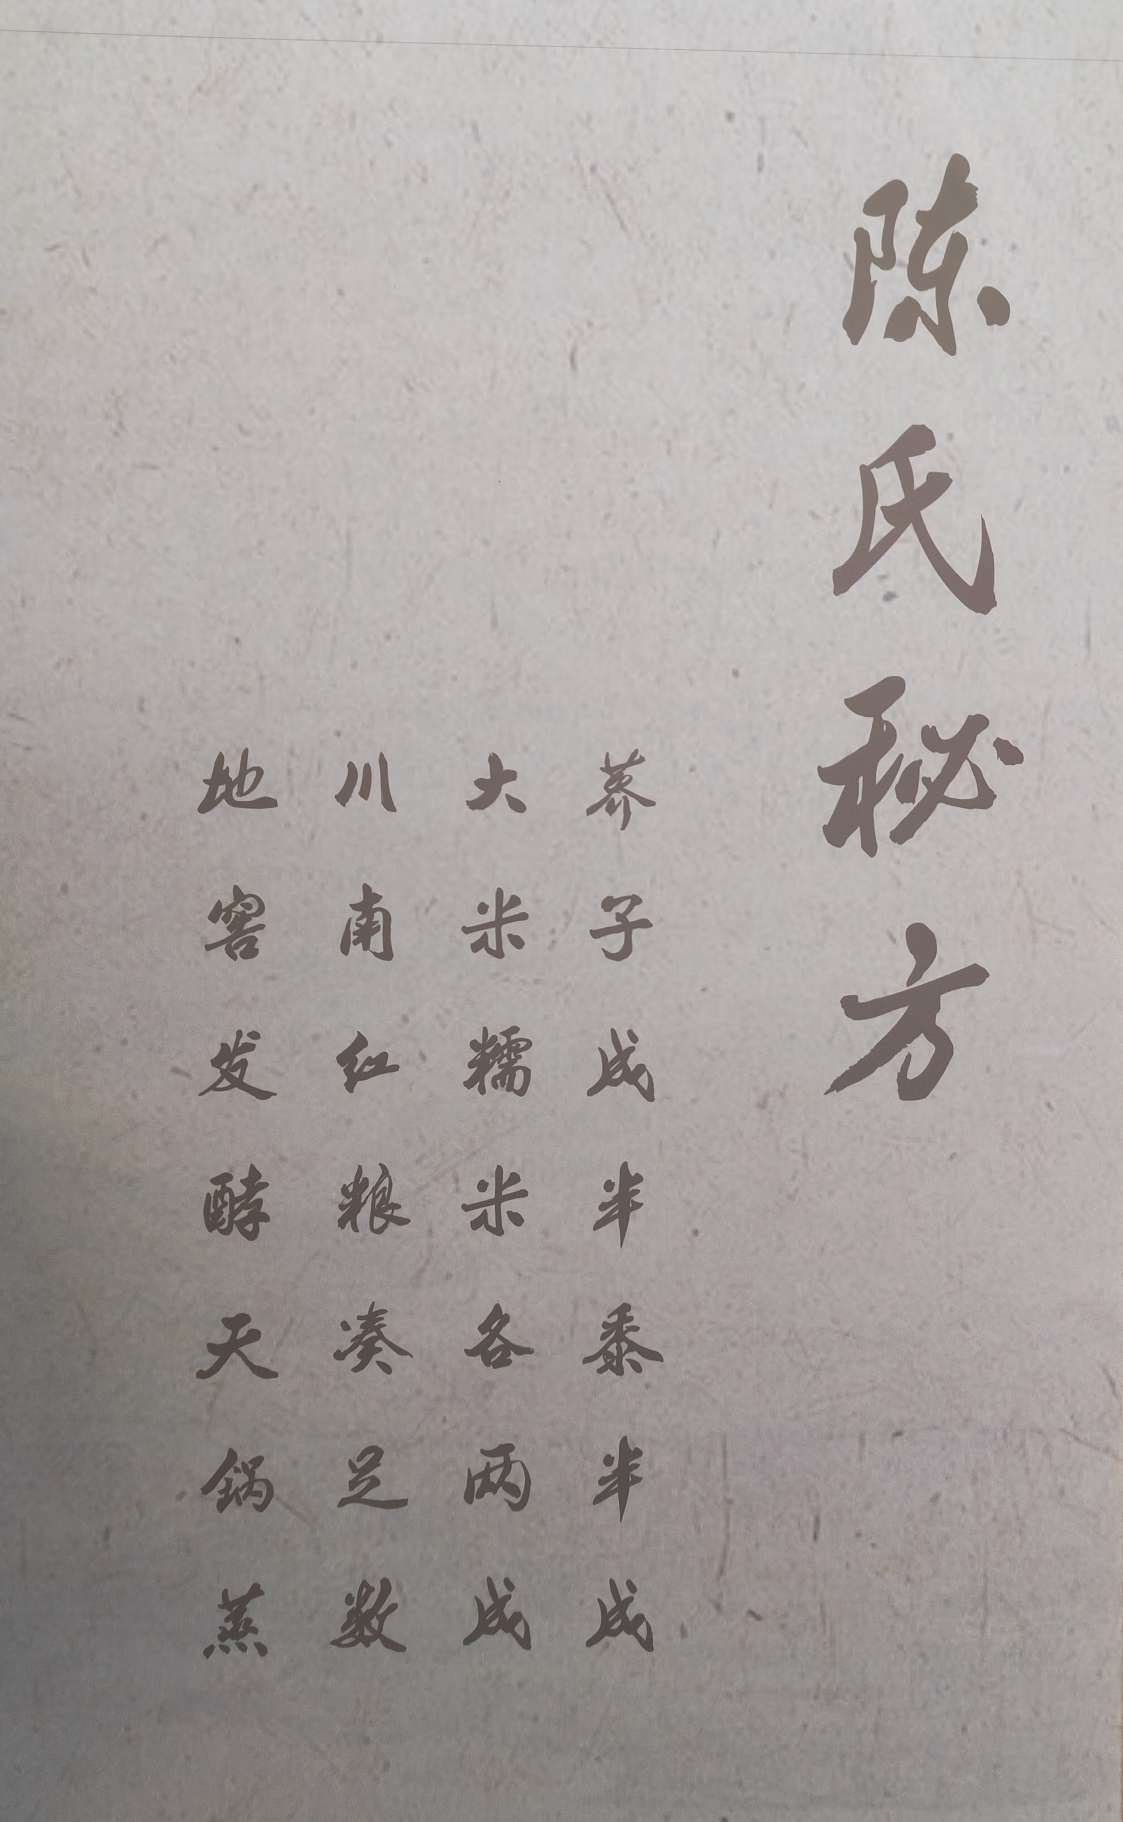 陈氏秘方
荞子成半黍半成
大米糯米各两成
川南红粮凑足数
地窖发酵天锅蒸